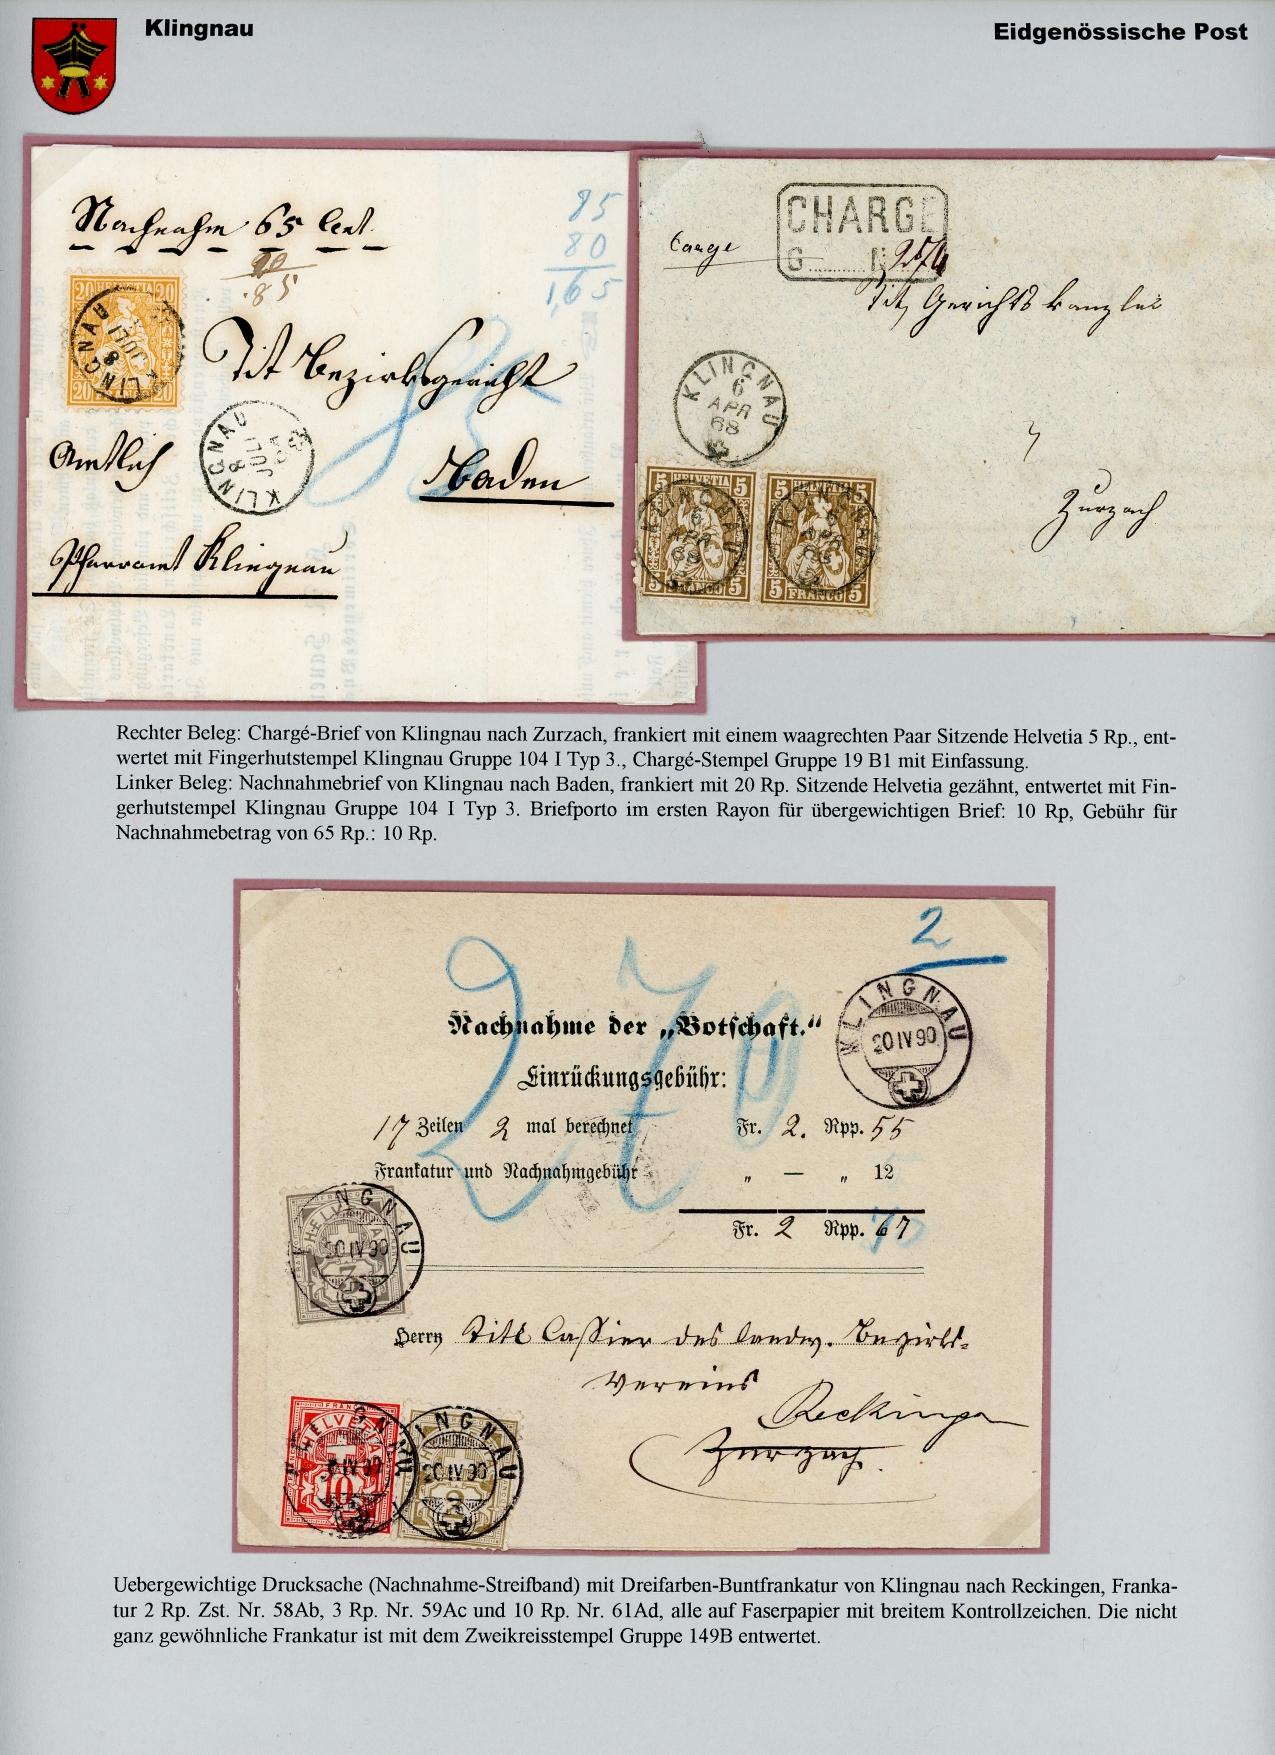 Klingnau
Eidgenössische Post
Nachnahm 65 Cent.
20
85
85
80
1,65
HELVETIA
20 20
20 20
KLINGNAU
8
JULI
Tit Bezirksgericht
85
Amtlich
KLINGNAU
8
JULI
Baden
Pfarramt Klingnau
CHARGÉ
N
Charge
Tit, Gerichtskanzlei
KLINGNAU
6
APR
68
Zurzach
5 HELVETIA 5
KLINGNAU
6
APR
68
5 FRANCO 5
5 HELVETIA 5
KLINGNAU
6
APR
68
5 FRANCO 5
Rechter Beleg: Chargé-Brief von Klingnau nach Zurzach, frankiert mit einem waagrechten Paar Sitzende Helvetia 5 Rp., ent-
wertet mit Fingerhutstempel Klingnau Gruppe 104 I Typ 3., Chargé-Stempel Gruppe 19 B1 mit Einfassung.
Linker Beleg: Nachnahmebrief von Klingnau nach Baden, frankiert mit 20 Rp. Sitzende Helvetia gezähnt, entwertet mit Fin-
gerhutstempel Klingnau Gruppe 104 I Typ 3. Briefporto im ersten Rayon für übergewichtigen Brief: 10 Rp, Gebühr für
Nachnahmebetrag von 65 Rp.: 10 Rp.
2
270
Nachnahme der „Botschaft.“
KLINGNAU
20 IV 90
Einrückungsgebühr:
17 Zeilen 2 mal berechnet Fr. 2. Rpp. 55
Frankatur und Nachnahmgebühr „ — „ 12
Fr. 2 Rpp. 67
70
HELVETIA
3
KLINGNAU
20 IV 90
Herrn Titl Cassier des landw. Bezirks-
vereins
Reckingen
Zurzach.
HELVETIA
10
KLINGNAU
20 IV 90
2
KLINGNAU
20 IV 90
Uebergewichtige Drucksache (Nachnahme-Streifband) mit Dreifarben-Buntfrankatur von Klingnau nach Reckingen, Franka-
tur 2 Rp. Zst. Nr. 58Ab, 3 Rp. Nr. 59Ac und 10 Rp. Nr. 61Ad, alle auf Faserpapier mit breitem Kontrollzeichen. Die nicht
ganz gewöhnliche Frankatur ist mit dem Zweikreisstempel Gruppe 149B entwertet.